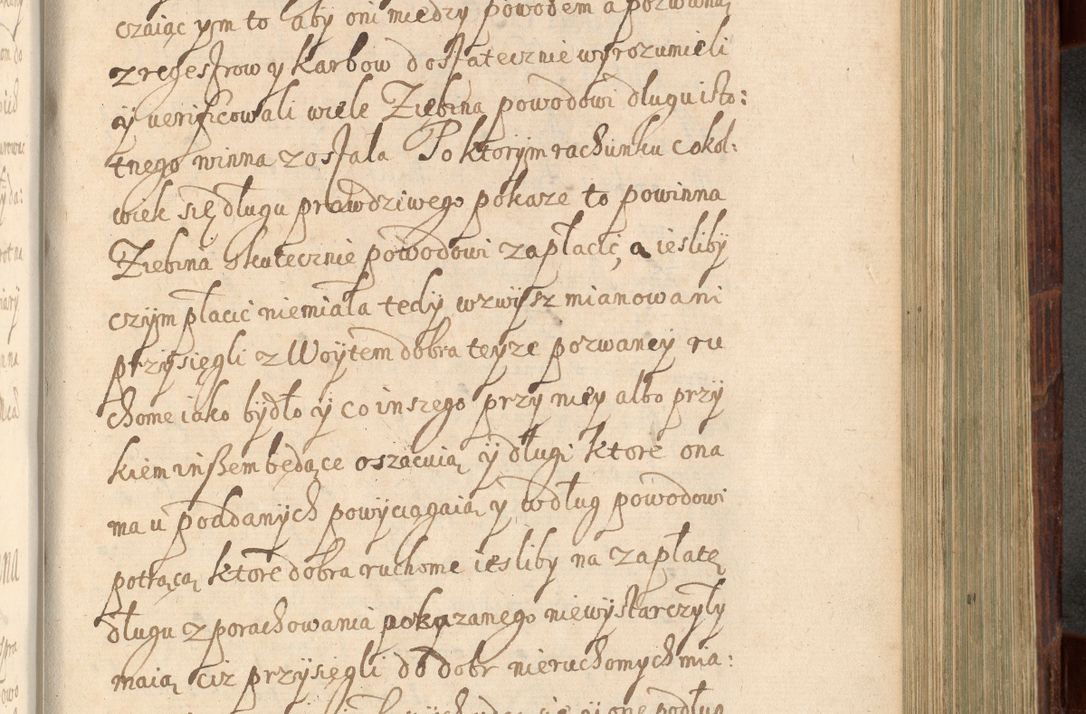 czaiąc ym to aby oni miedzy powodem a pozwaną
z regestrow y karbow dostatecznie wyrozumieli
y uerificowali wiele Ziebina powodowi długu isto:
tnego winna zostala Po ktorym rachunku cokol:
wiek się długu prawdziwego pokaze to powinna
Ziebina skutecznie powodowi zapłacić, a iesliby
czym płacić niemiała tedy wzwysz mianowani
przysięgli z Woytem dobra teyze pozwaney ru
chome iako bydło y co inszego przy niey albo przy
kiem inßem będące oszacuią y długi ktore ona
ma u poddanych powyciągaią y w dług powodowi
potrącą ktore dobra ruchome iesliby na zapłatę
długu z porachowania pokazanego niewystarczyły
maią ciz przysięgli do dobr nieruchomych mia:
się y one podług